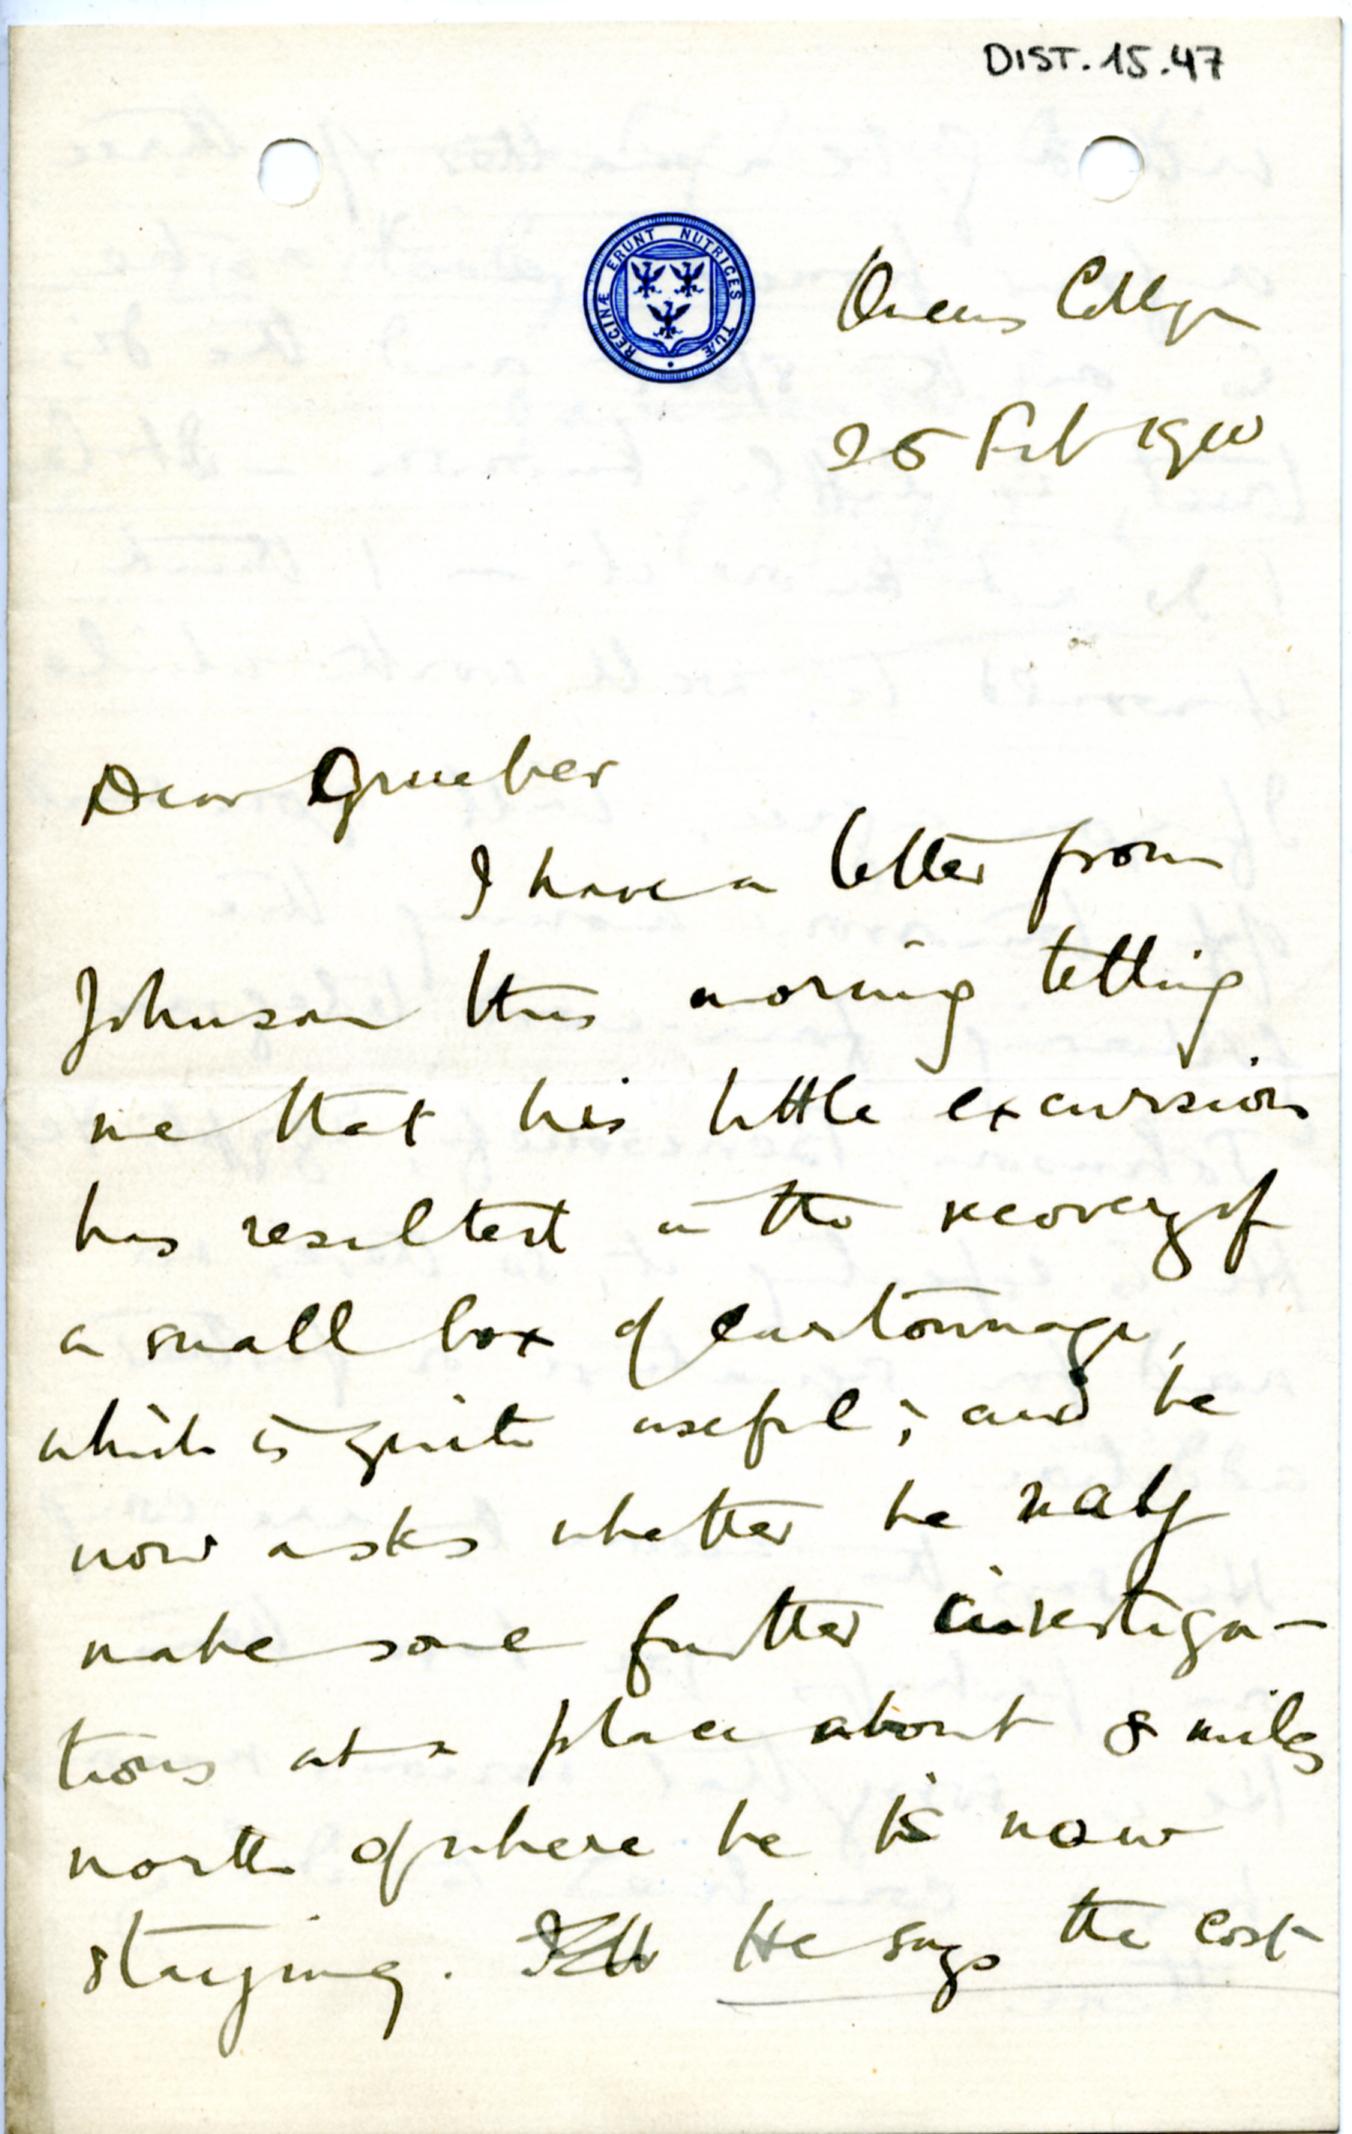 DIST. 15.47
REGINÆ ERUNT NUTRICES TUÆ
Queens College
25 Feb 1910
Dear Grueber
I have a letter from
Johnson this morning telling
me that his little excursion
has resulted in the recovery of
a small box of cartonnage,
which is quite useful; and he
now asks whether he may
make some further investiga-
tions at a place about 8 miles
north of where he is now
staying. He says the cost